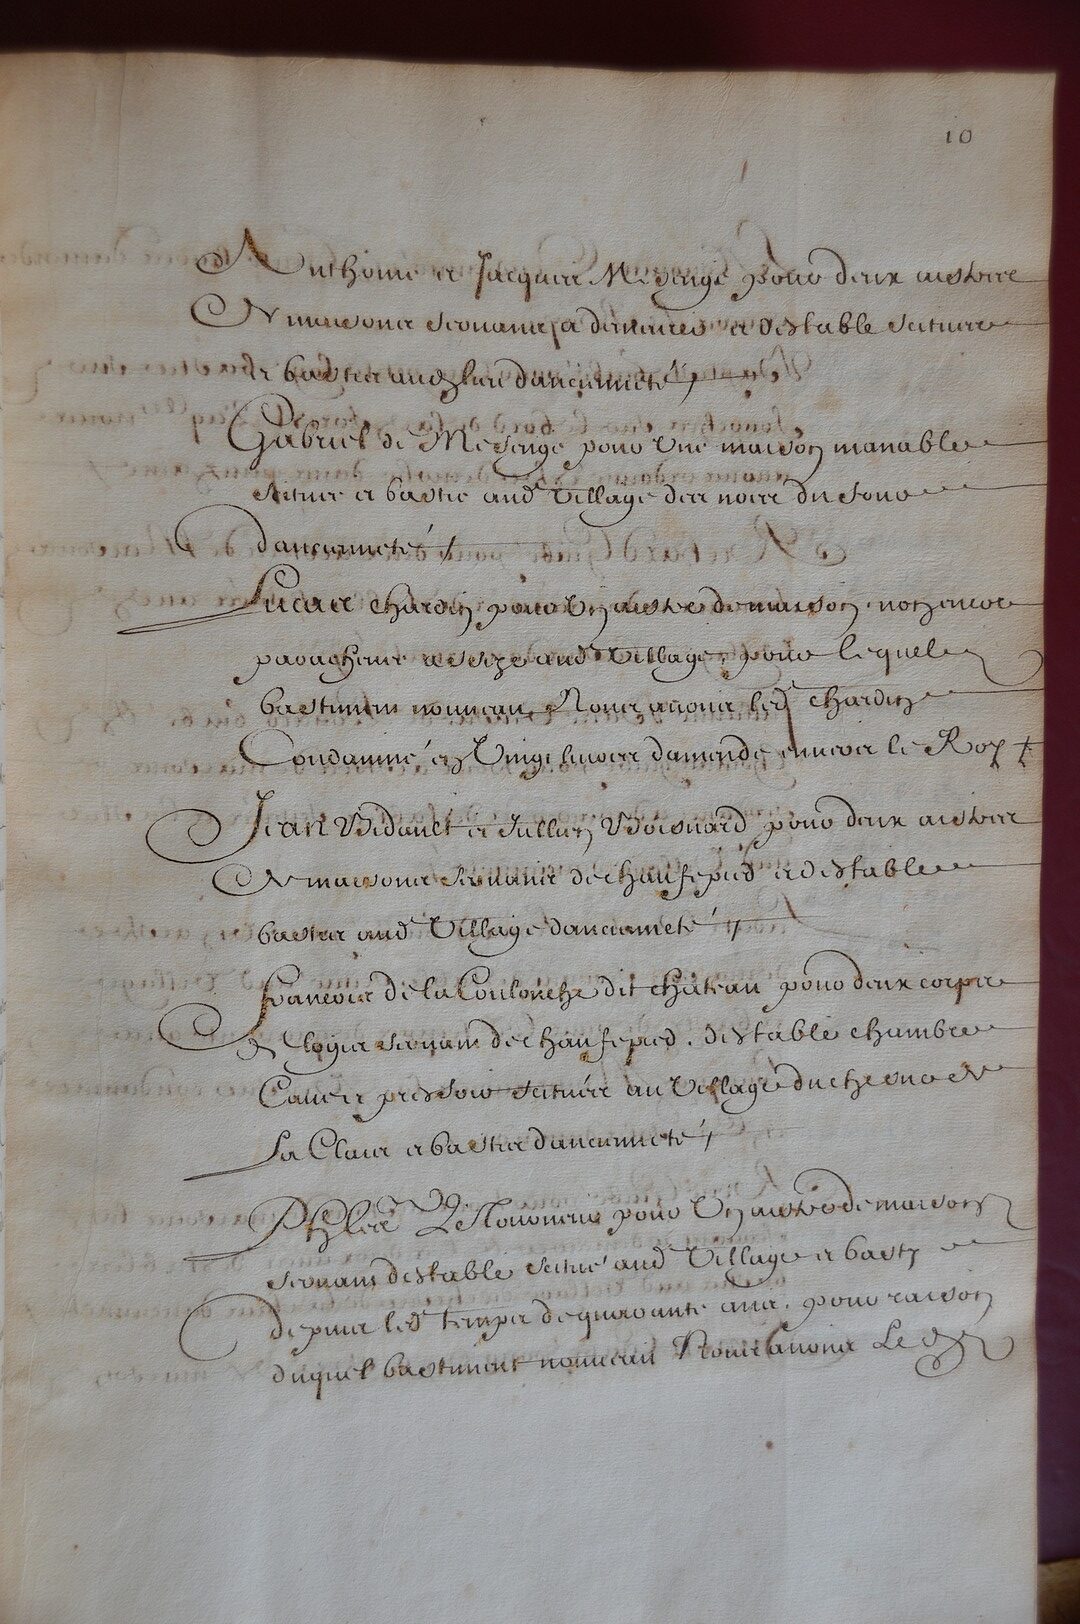 10
Anthoine et Jacques Mesenge pour deux aistres
de maisons servants a demeures et destable scitues
et bastis aud lieu dancienneté
Gabriel de Mesenge pour une maison manable
scituee et bastie aud village des noes du four
dancienneté
Lucas chardin pour un aistre de maison non encor
parachevé assize aud village, pour lequel
bastiment nouveau Nous avons led chardin
Condamné en Vingt livres damende envers le Roy
Jean Bidault et Jullien Boisnard pour deux aistres
de maisons servants de chaufepied et destable
bastis aud Village dancienneté
francois de la Coulonche dit chateau pour deux corps
de logis servans de chaufepied. destable chambre
Cave et pressoir scitués au Village du chesne de
La Claie et bastis dancienneté
pour un aistre de maison
servans destable scitué aud Village et basty
depuis led temps de quarante ans. pour raison
duquel bastiment nouveau Nous avons Led